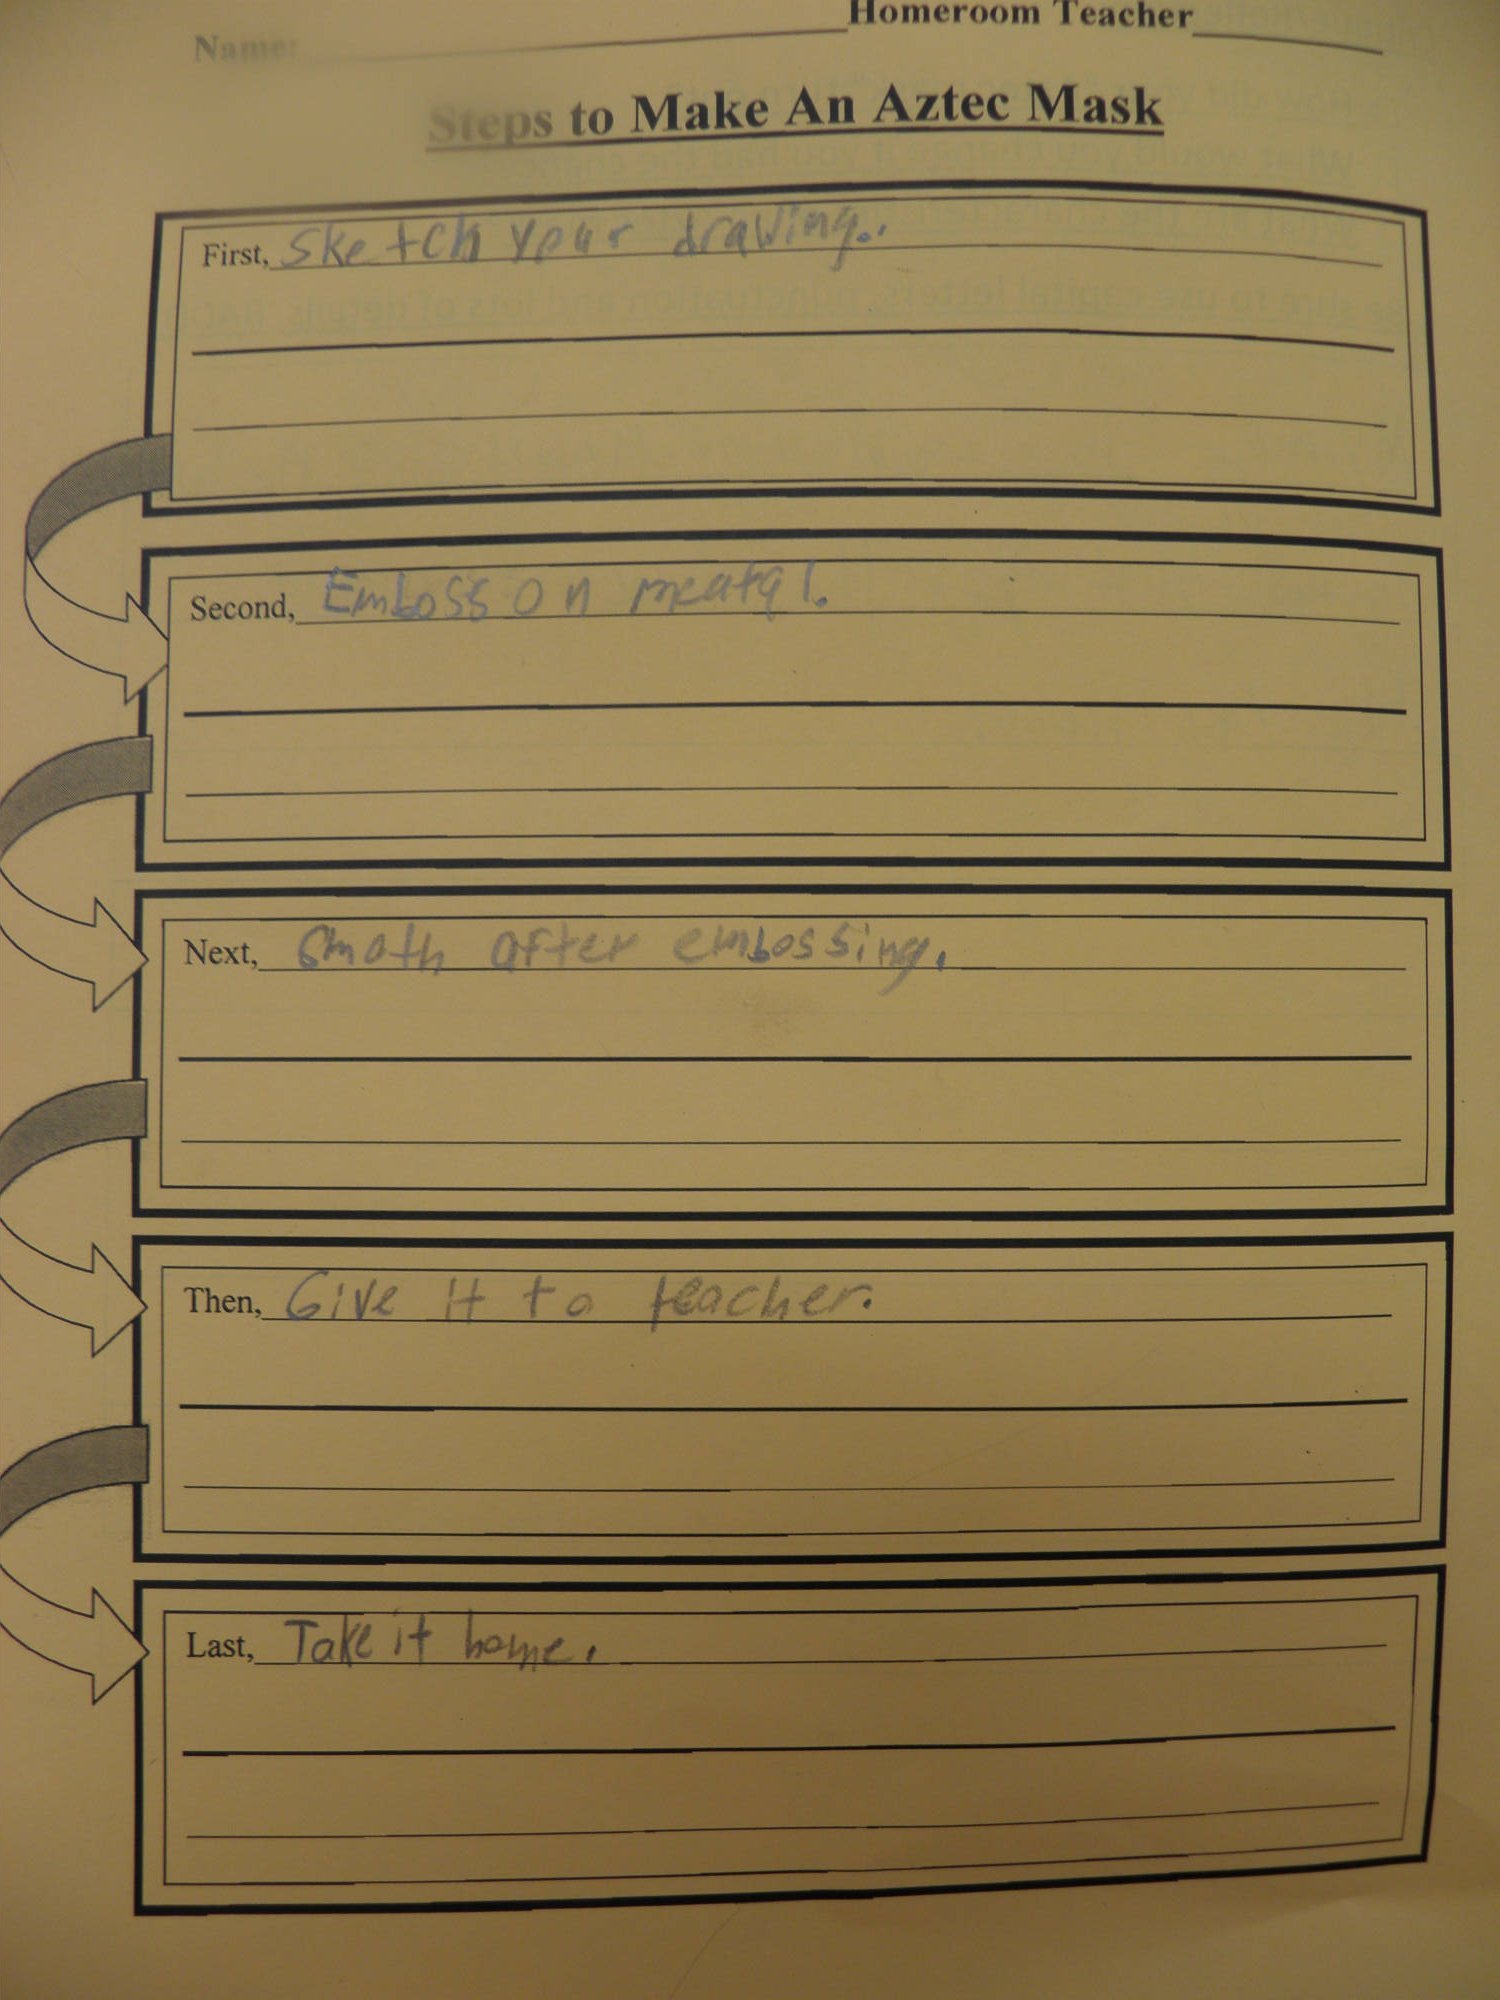 Homeroom Teacher
Name:
Steps to Make An Aztec Mask
First, Sketch your drawing..
Second, Emboss on meatal.
Next, Smoth after embossing.
Then, Give it to teacher.
Last, Take it home.